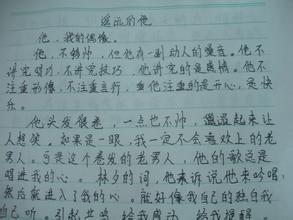 遥远的他
他,我的偶像。
他,不够帅,但他有一副动人的嗓音。他不
讲究唱功,不讲究技巧,他讲究的是感情。他不
注重形像,不注重言行,他注重的是开心,是快
乐。
他头发很卷,一点也不帅,起来让
人想笑。如果是一眼,我一定不会喜欢上的老
男人。可是这个卷发的老男人,他的歌总是
唱进我的心。林夕的词,他来诉说他来吟唱,
然后就进入了我的心。就好像我自己的独白我
自己听。引起共鸣,给我感动,给我提醒。